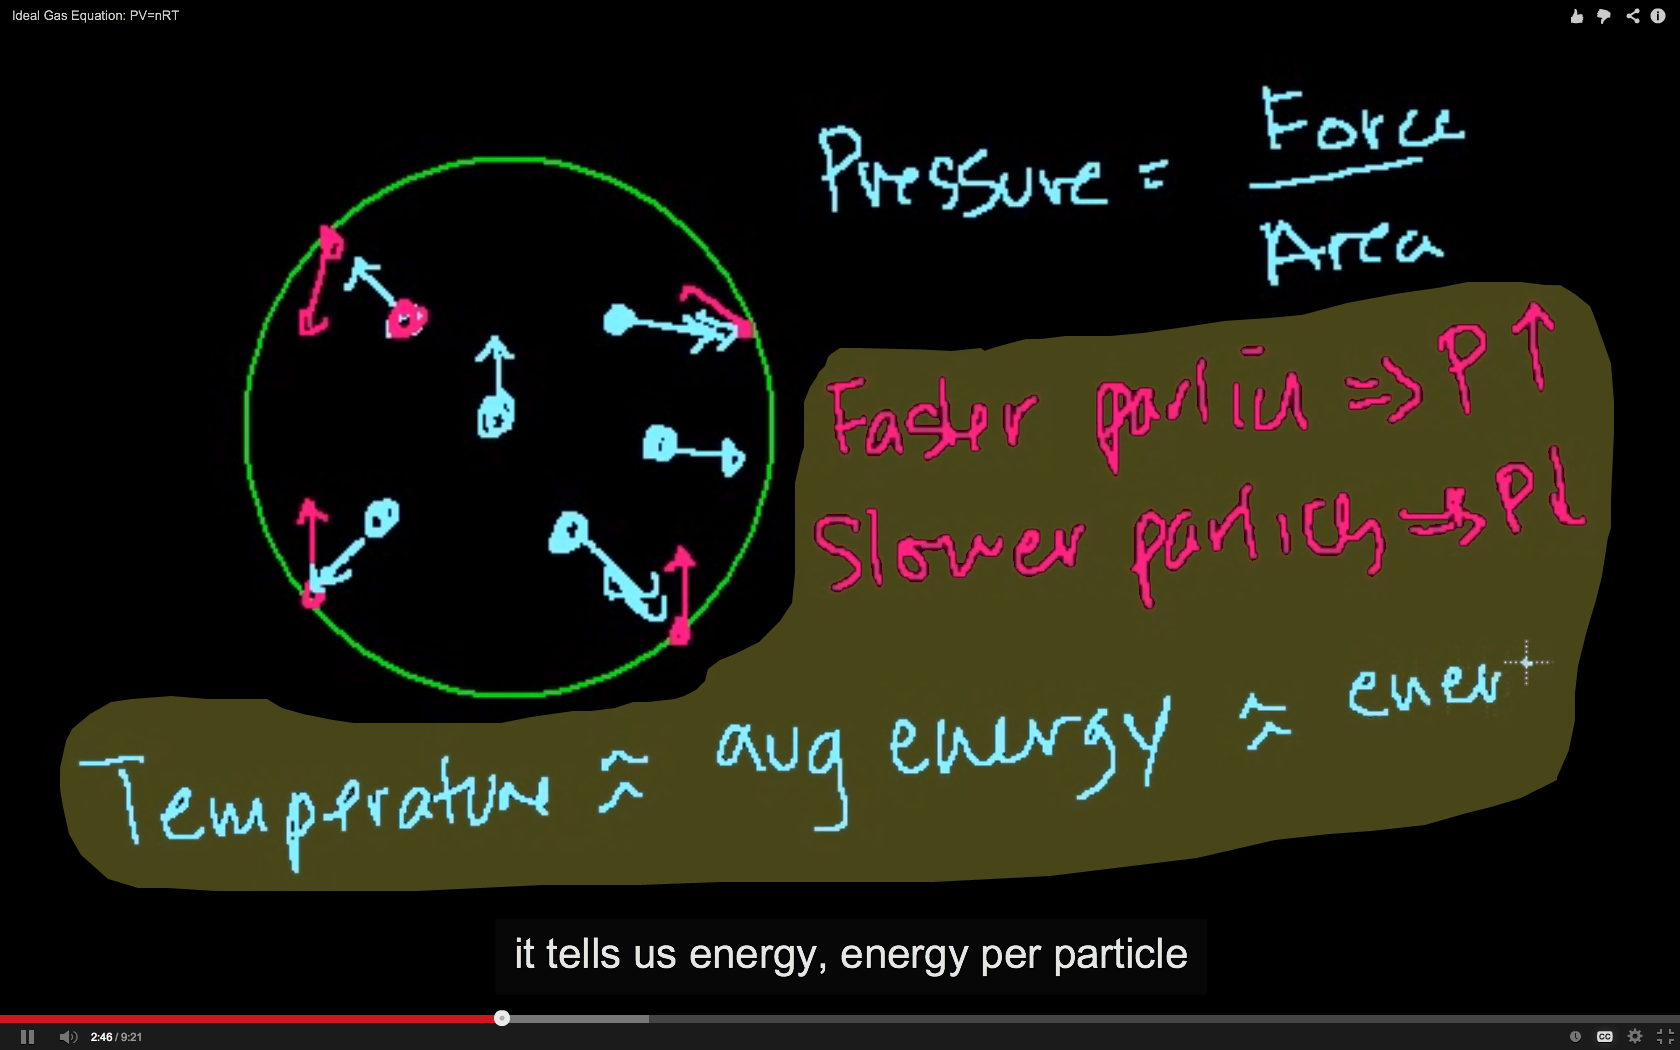 Ideal Gas Equation: PV=nRT
Pressure = Force
Area
Faster particl ⇒ P ↑
Slower particles ⇒ P↓
Temperature ≈ avg energy ≈ ener
it tells us energy, energy per particle
2:46 / 9:21
CC